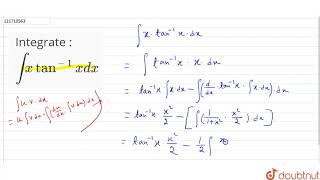 121710563
Integrate :
∫ x tan⁻¹ x dx
∫ u·v·dx
= u ∫v·dx − ∫(du/dx · ∫v·dx) dx
∫ x· tan⁻¹x · dx
= ∫ tan⁻¹x · x dx
= tan⁻¹x ∫x·dx − ∫(d/dx tan⁻¹x · ∫x·dx) dx
= tan⁻¹x · x²/2 − [∫(1/(1+x²) · x²/2) · dx]
= tan⁻¹x · x²/2 − 1/2 ∫ x
doubtnut